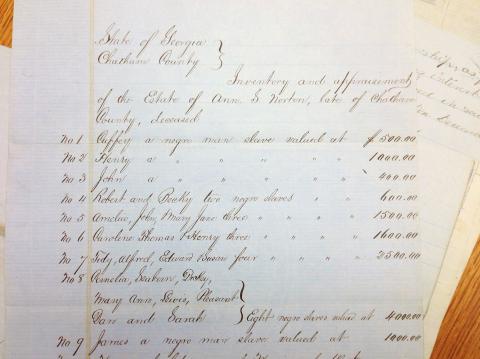 State of Georgia }
Chatham County }
Inventory and appraisement
of the Estate of Ann S. Norton, late of Chatham
County, deceased
No 1 Cuffey a negro man slave valued at $500.00
No 2 Henry a " " " " " 1000.00
No 3 John a " " " " " 400.00
No 4 Robert and Becky two negro slaves " " 600.00
No 5 Amelia, John, Mary Jane three " " " " 1500.00
No 6 Caroline Thomas & Henry three " " " 1600.00
No 7 Tidy, Alfred, Edward Susan four " " " 2500.00
No 8 Cornelia, Seaborn,
Mary Ann, Lewis, Pleasant
Dan and Sarah } Eight negro slaves valued at 4000.00
No 9 James a negro man slave valued " 1000.00